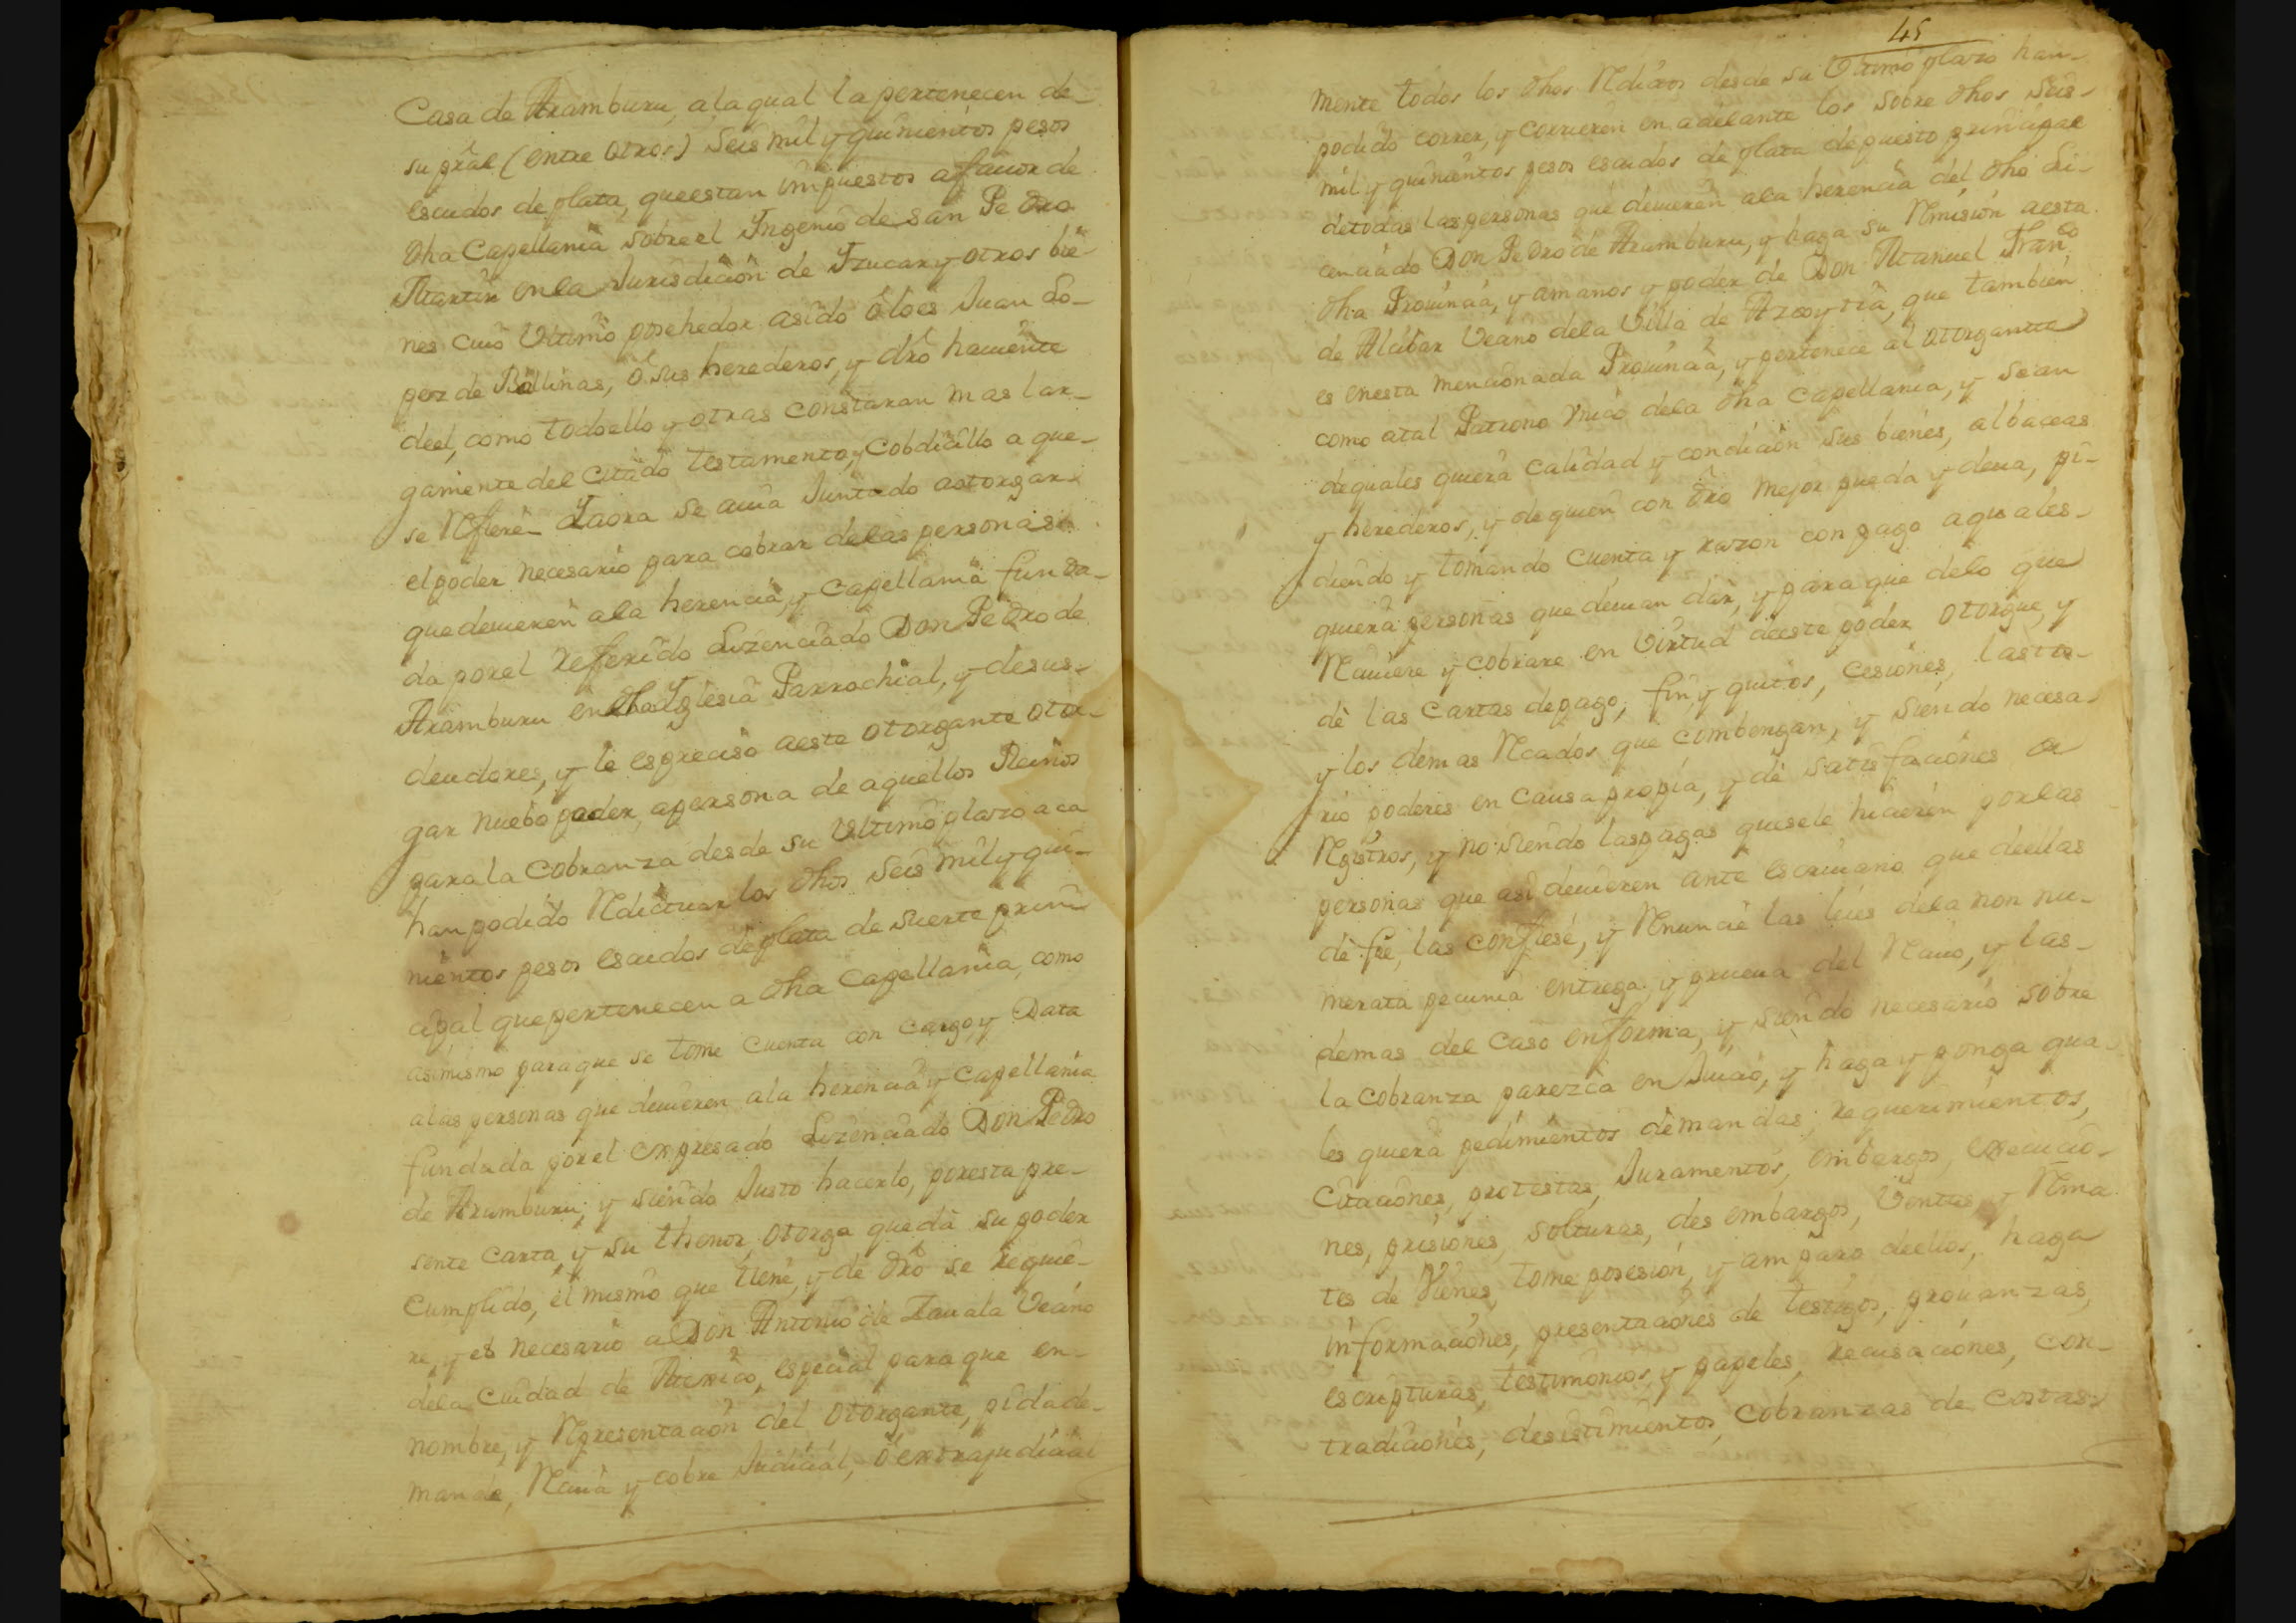 Casa de Aramburu, ala qual la pertenecen de-
su pral (entre otros) Seis mil y quinientos pesos
escudos de plata, que estan impuestos a fauor de
dha Capellania sobre el Ingenio de San Pedro
Martir en la Jurisdicion de Izucar y otros bie-
nes cuio Vltimo posehedor asido Eloes Juan Lo-
pez de Bollinas, o sus herederos, y dro hauiente
deel, como todo ello y otras constaran mas lar-
gamente del citado testamento, y Cobdicillo a que-
se Refiere Iaora se auia Juntado aotorgar
el poder necesario para cobrar delas personas
que deuieren ala herencia, y Capellania funda-
da por el referido Lizenciado Don Pedro de
Aramburu en dha Iglesia Parrochial, y desus-
deudores, y le es preciso aeste otorgante otor-
gar nuebo poder, apersona de aquellos Reinos
para la Cobranza desde su Vltimo plazo aca
han podido Redictuar los dhos Seis mil y qui-
nientos pesos escudos de plata de suerte prin
cipal que pertenecen a dha Capellania, como
asimismo para que se tome cuenta con cargo, y Data
alas personas que deuieren ala herencia y Capellania
fundada por el expresado Lizenciado Don Pedro
de Aramburu; y siendo Justo hacerlo, por esta pre-
sente Carta, y su thenor, otorga que dà su poder
Cumplido, el mismo que tiene, y de dro se requie-
re, y es necesario a Don Antonio de Zauala Vecino
dela Ciudad de Mexico, especial para que en-
nombre, y Representacion del otorgante, pida de-
mande, Reciua y cobre Judicial, o extrajudicial
45
mente todos los dhos Reditos desde su Vltimo plazo han-
podido correr, y corrieren en adelante los sobre dhos Seis-
mil y quinientos pesos escudos de plata depuesto principal
detodas las personas que deuieren ala herencia del dho Li-
cenciado Don Pedro de Aramburu, y haga su Remision aesta
dha Prouincia, y amanos y poder de Don Manuel Franco
de Alcibar Vecino dela Villa de Azcoytia, que tambien
es enesta mencionada Prouincia, y pertenece al otorgante
como atal Patrono Vnico dela dha Capellania, y sean
dequales quiera calidad y condicion sus bienes, albaceas
y herederos, y de quien con dro mejor pueda y deua, pi-
diendo y tomando Cuenta y razon con pago aquales-
quiera personas que deuan dar, y para que delo que
Reciuiere y cobrare en Virtud deeste poder otorgue, y
dè las Cartas de pago, fin, y quitos, Cesiones, lasto-
y los demas Recados que combengan, y siendo necesa-
rio poderes en causa propia, y dè satisfaciones a
Registros, y no siendo las pagas quesele hicieren por las
personas que asi deuieren ante escriuano que deellas
dè fee, las confiese, y Renuncie las leies dela non nu-
merata pecunia entrega, y prueua del Reciuo, y las-
demas del caso en forma, y siendo necesario sobre
la cobranza parezca en Juicio, y haga y ponga qua-
les quiera pedimientos demandas, requerimientos,
Citaciones, protestas, Juramentos, embargos, execucio-
nes, prisiones, solturas, des embargos, Ventas, y Rema
tes de Vienes, tome posesion, y amparo deellos, haga
informaciones, presentaciones de testigos, prouanzas,
escripturas, testimonios, y papeles, recusaciones, con-
tradiciones, desistimientos, cobranzas de costas